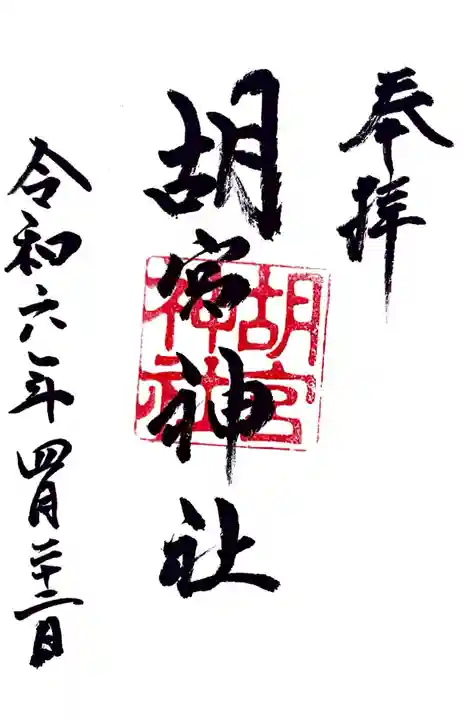 奉拝
胡宮神社
胡宮
神社
令和六年四月二十二日